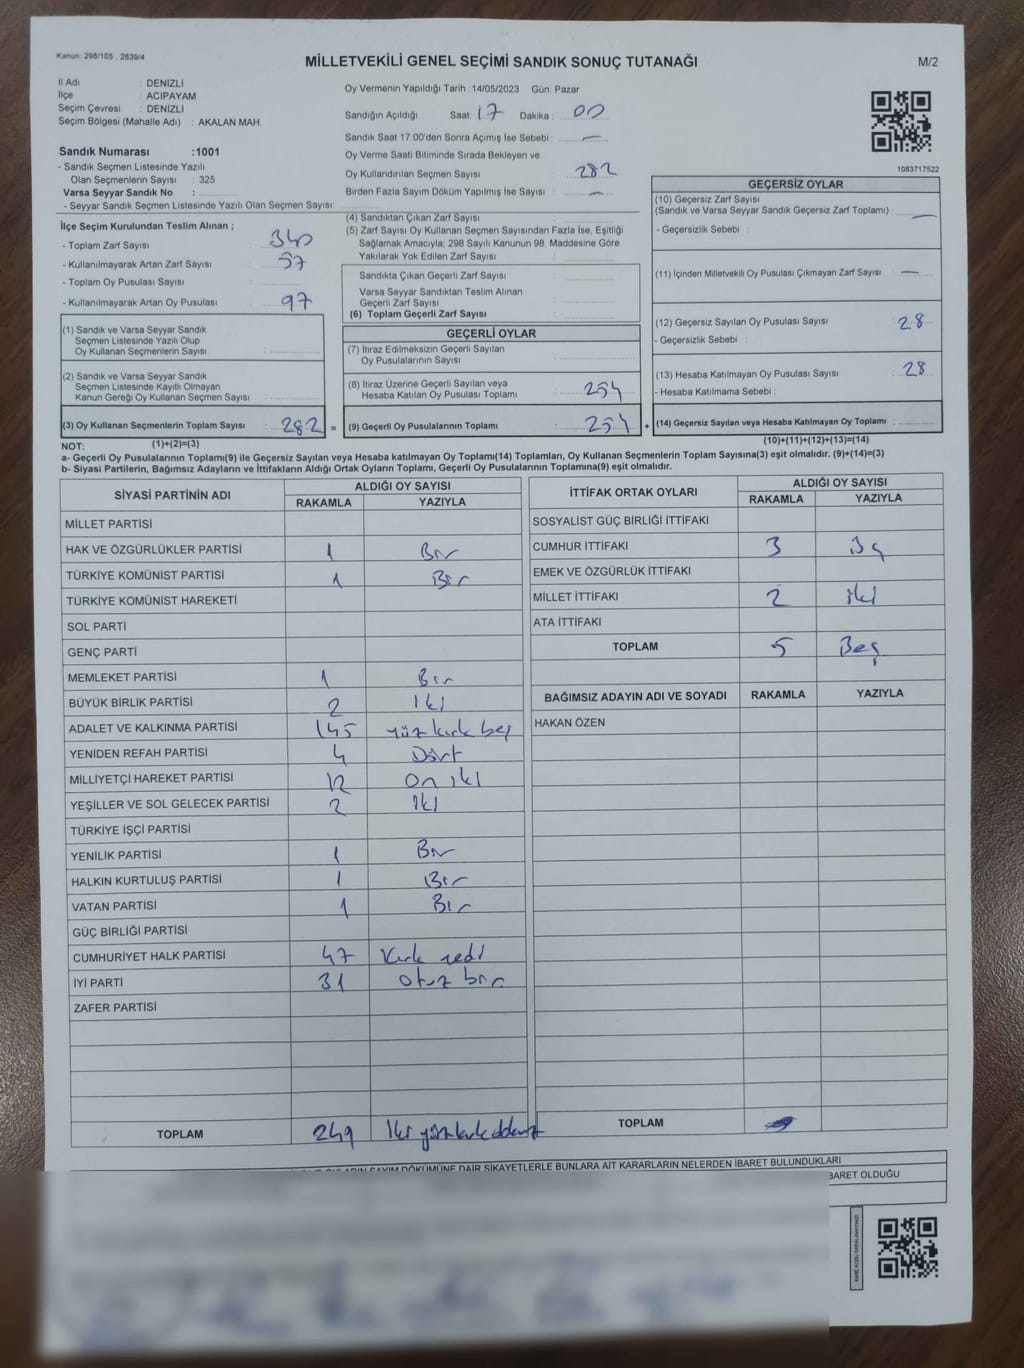 Kanun: 298/105 , 2839/4
MİLLETVEKİLİ GENEL SEÇİMİ SANDIK SONUÇ TUTANAĞI
M/2
İl Adı : DENİZLİ
İlçe : ACIPAYAM
Seçim Çevresi : DENİZLİ
Seçim Bölgesi (Mahalle Adı) : AKALAN MAH.
Sandık Numarası :1001
- Sandık Seçmen Listesinde Yazılı
Olan Seçmenlerin Sayısı : 325
Varsa Seyyar Sandık No :
- Seyyar Sandık Seçmen Listesinde Yazılı Olan Seçmen Sayısı :
Oy Vermenin Yapıldığı Tarih :14/05/2023 Gün: Pazar
Sandığın Açıldığı Saat: 17 Dakika : 00
Sandık Saat 17:00'den Sonra Açımış İse Sebebi : —
Oy Verme Saati Bitiminde Sırada Bekleyen ve
Oy Kullandırılan Seçmen Sayısı : 282
Birden Fazla Sayım Döküm Yapılmış İse Sayısı : —
1083717522
İlçe Seçim Kurulundan Teslim Alınan ;
- Toplam Zarf Sayısı : 340
- Kullanılmayarak Artan Zarf Sayısı : 57
- Toplam Oy Pusulası Sayısı :
- Kullanılmayarak Artan Oy Pusulası : 97
(1) Sandık ve Varsa Seyyar Sandık
Seçmen Listesinde Yazılı Olup
Oy Kullanan Seçmenlerin Sayısı :
(2) Sandık ve Varsa Seyyar Sandık
Seçmen Listesinde Kayıtlı Olmayan
Kanun Gereği Oy Kullanan Seçmen Sayısı :
(3) Oy Kullanan Seçmenlerin Toplam Sayısı : 282 =
(4) Sandıktan Çıkan Zarf Sayısı :
(5) Zarf Sayısı Oy Kullanan Seçmen Sayısından Fazla İse, Eşitliği
Sağlamak Amacıyla; 298 Sayılı Kanunun 98. Maddesine Göre
Yakılarak Yok Edilen Zarf Sayısı :
Sandıkta Çıkan Geçerli Zarf Sayısı :
Varsa Seyyar Sandıktan Teslim Alınan
Geçerli Zarf Sayısı :
(6) Toplam Geçerli Zarf Sayısı :
GEÇERLİ OYLAR
(7) İtiraz Edilmeksizin Geçerli Sayılan
Oy Pusulalarının Sayısı :
(8) İtiraz Üzerine Geçerli Sayılan veya
Hesaba Katılan Oy Pusulası Toplamı : 254
(9) Geçerli Oy Pusulalarının Toplamı : 254 +
GEÇERSİZ OYLAR
(10) Geçersiz Zarf Sayısı
(Sandık ve Varsa Seyyar Sandık Geçersiz Zarf Toplamı) : —
- Geçersizlik Sebebi :
(11) İçinden Milletvekili Oy Pusulası Çıkmayan Zarf Sayısı : —
(12) Geçersiz Sayılan Oy Pusulası Sayısı : 28
- Geçersizlik Sebebi :
(13) Hesaba Katılmayan Oy Pusulası Sayısı : 28
- Hesaba Katılmama Sebebi :
(14) Geçersiz Sayılan veya Hesaba Katılmayan Oy Toplamı :
NOT: (1)+(2)=(3)
(10)+(11)+(12)+(13)=(14)
a- Geçerli Oy Pusulalarının Toplamı(9) ile Geçersiz Sayılan veya Hesaba katılmayan Oy Toplamı(14) Toplamları, Oy Kullanan Seçmenlerin Toplam Sayısına(3) eşit olmalıdır. (9)+(14)=(3)
b- Siyasi Partilerin, Bağımsız Adayların ve İttifakların Aldığı Ortak Oyların Toplamı, Geçerli Oy Pusulalarının Toplamına(9) eşit olmalıdır.
SİYASİ PARTİNİN ADI ALDIĞI OY SAYISI
RAKAMLA YAZIYLA
MİLLET PARTİSİ
HAK VE ÖZGÜRLÜKLER PARTİSİ 1 Bir
TÜRKİYE KOMÜNİST PARTİSİ 1 Bir
TÜRKİYE KOMÜNİST HAREKETİ
SOL PARTİ
GENÇ PARTİ
MEMLEKET PARTİSİ 1 Bir
BÜYÜK BİRLİK PARTİSİ 2 İki
ADALET VE KALKINMA PARTİSİ 145 yüz kırk beş
YENİDEN REFAH PARTİSİ 4 Dört
MİLLİYETÇİ HAREKET PARTİSİ 12 On iki
YEŞİLLER VE SOL GELECEK PARTİSİ 2 İki
TÜRKİYE İŞÇİ PARTİSİ
YENİLİK PARTİSİ 1 Bir
HALKIN KURTULUŞ PARTİSİ 1 Bir
VATAN PARTİSİ 1 Bir
GÜÇ BİRLİĞİ PARTİSİ
CUMHURİYET HALK PARTİSİ 47 Kırk yedi
İYİ PARTİ 31 Otuz bir
ZAFER PARTİSİ
TOPLAM 249 İki yüz kırk
İTTİFAK ORTAK OYLARI ALDIĞI OY SAYISI
RAKAMLA YAZIYLA
SOSYALİST GÜÇ BİRLİĞİ İTTİFAKI
CUMHUR İTTİFAKI 3
EMEK VE ÖZGÜRLÜK İTTİFAKI
MİLLET İTTİFAKI 2 iki
ATA İTTİFAKI
TOPLAM 5 Beş
BAĞIMSIZ ADAYIN ADI VE SOYADI RAKAMLA YAZIYLA
HAKAN ÖZEN
TOPLAM
SAYIM DÖKÜMÜNE DAİR ŞİKAYETLERLE BUNLARA AİT KARARLARIN NELERDEN İBARET BULUNDUKLARI
BARET OLDUĞU